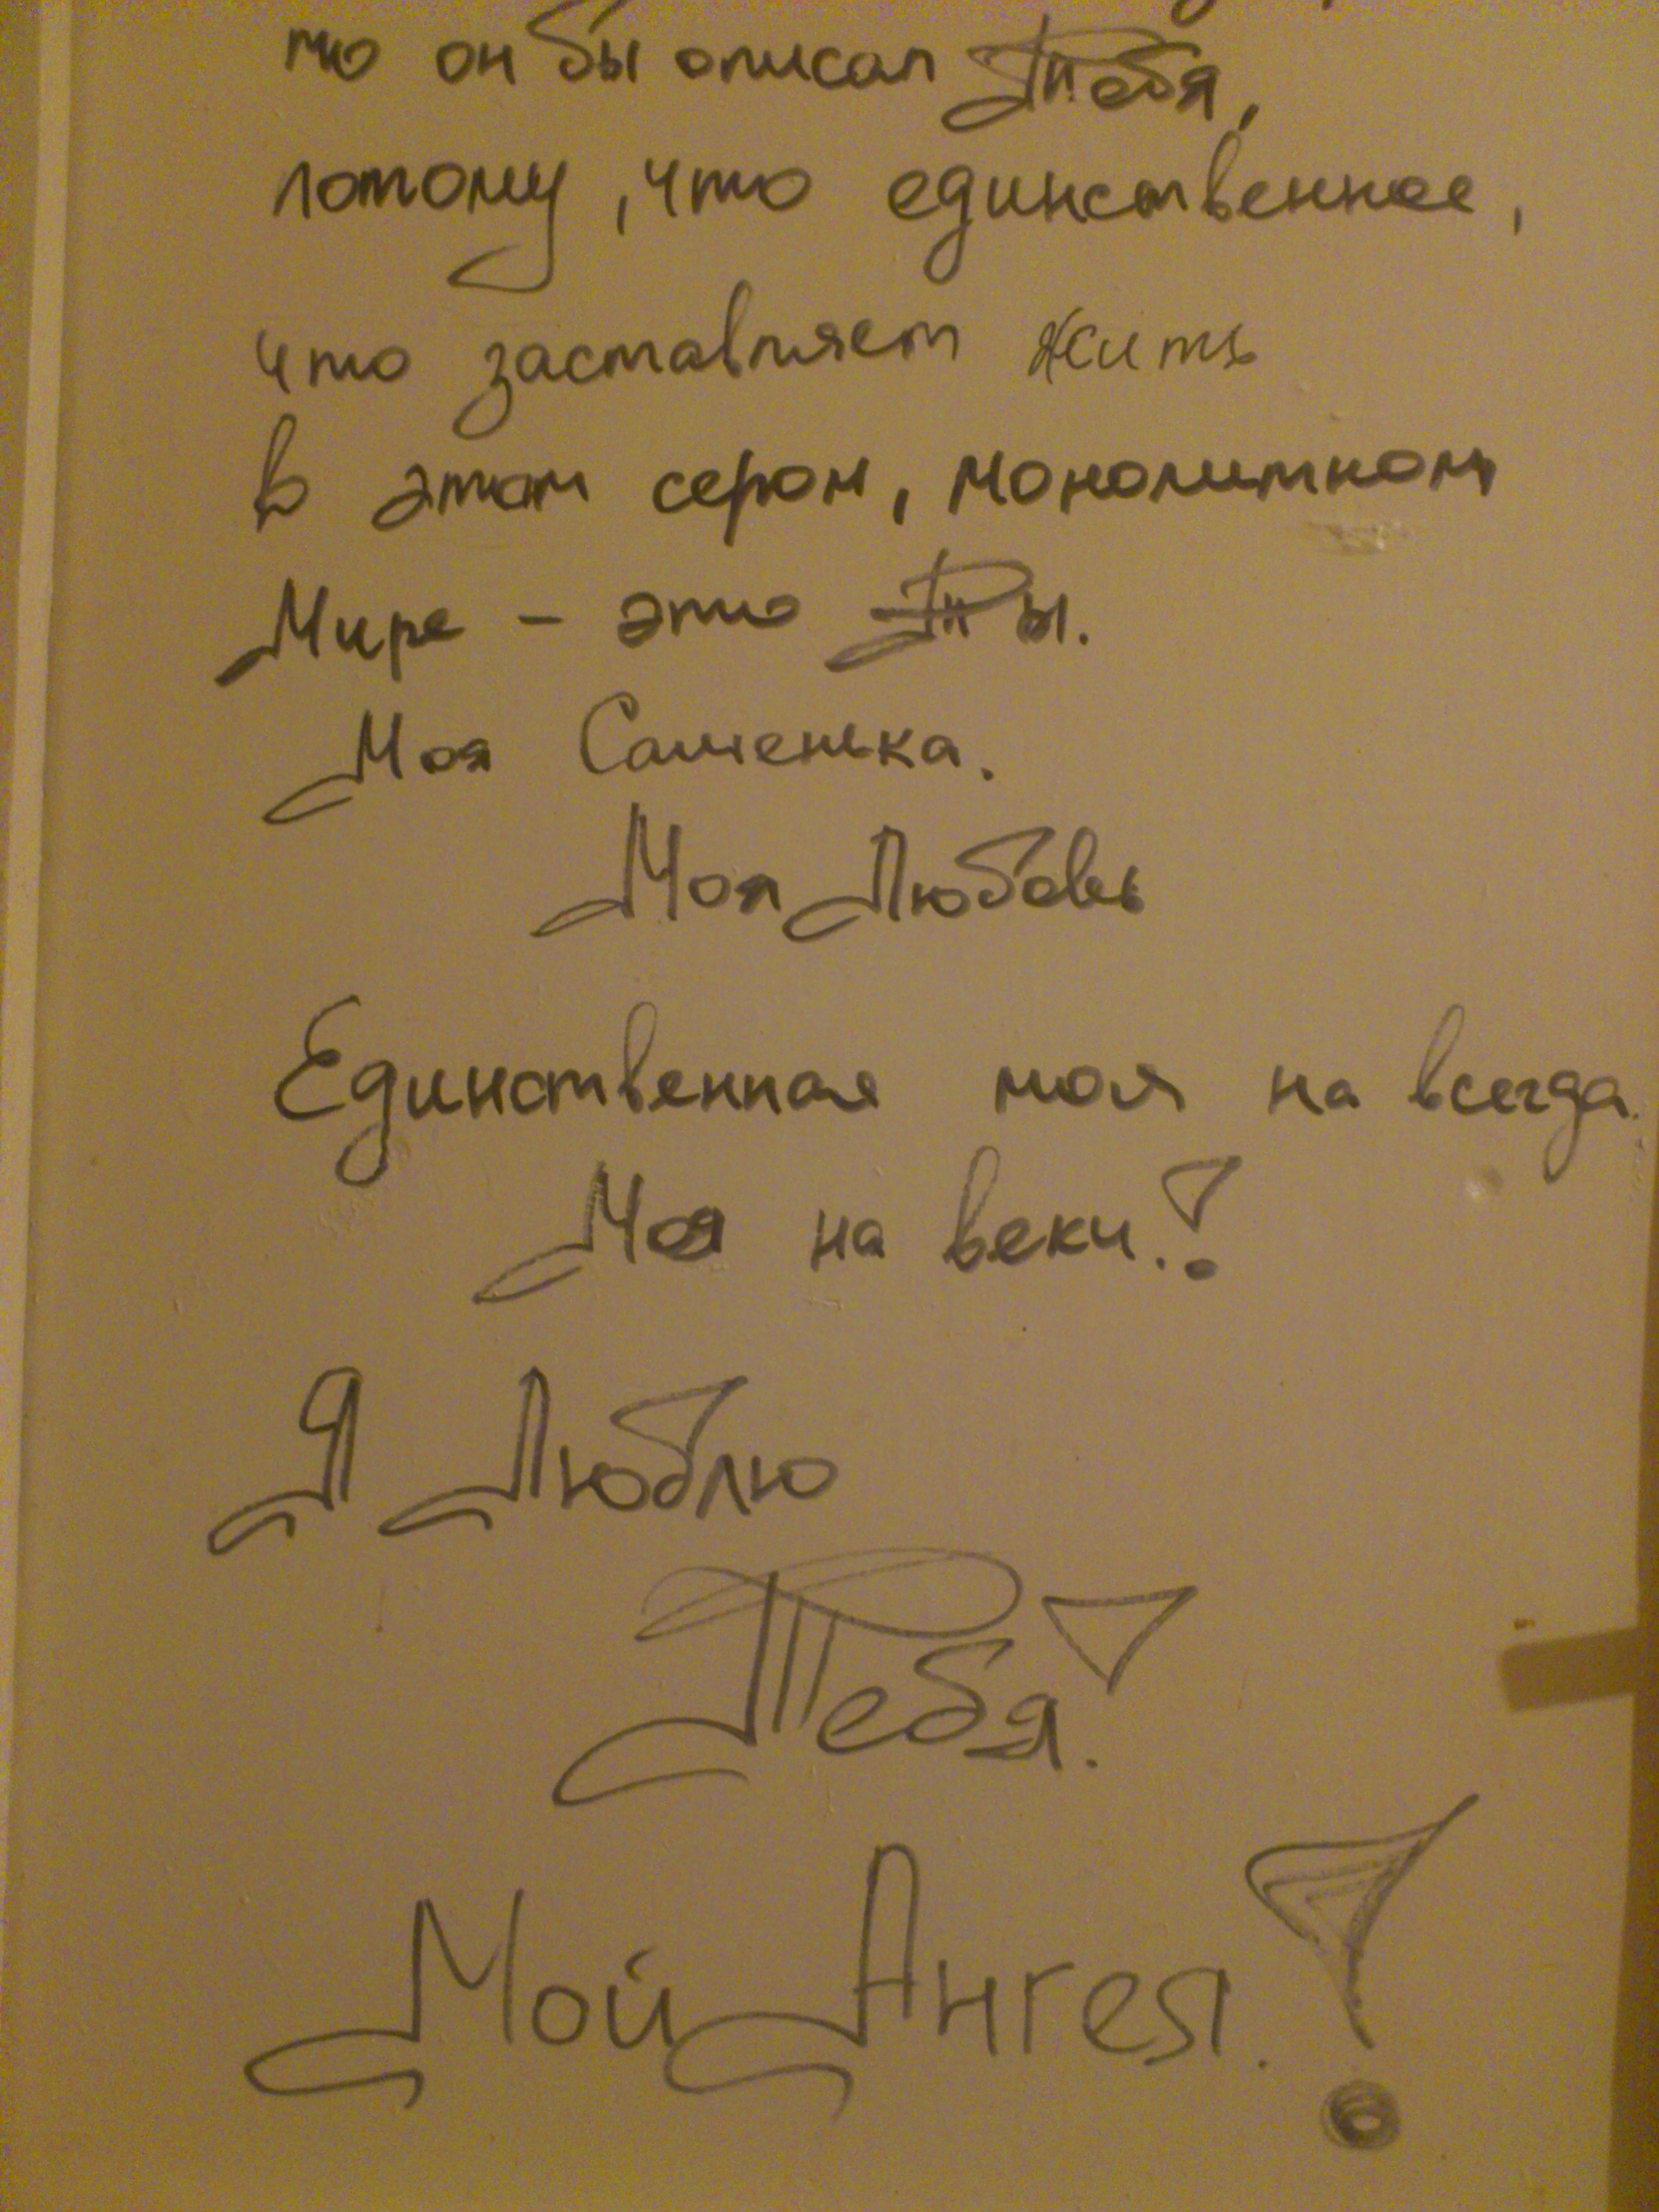 то он бы описал Тебя,
потому, что единственное,
что заставляет жить
в этом сером, монолитном
Мире - это Ты.
Моя Сашенька.
Моя Любовь
Единственная моя на всегда.
Моя на веки.!
Я Люблю
Тебя.
Мой Ангел.!